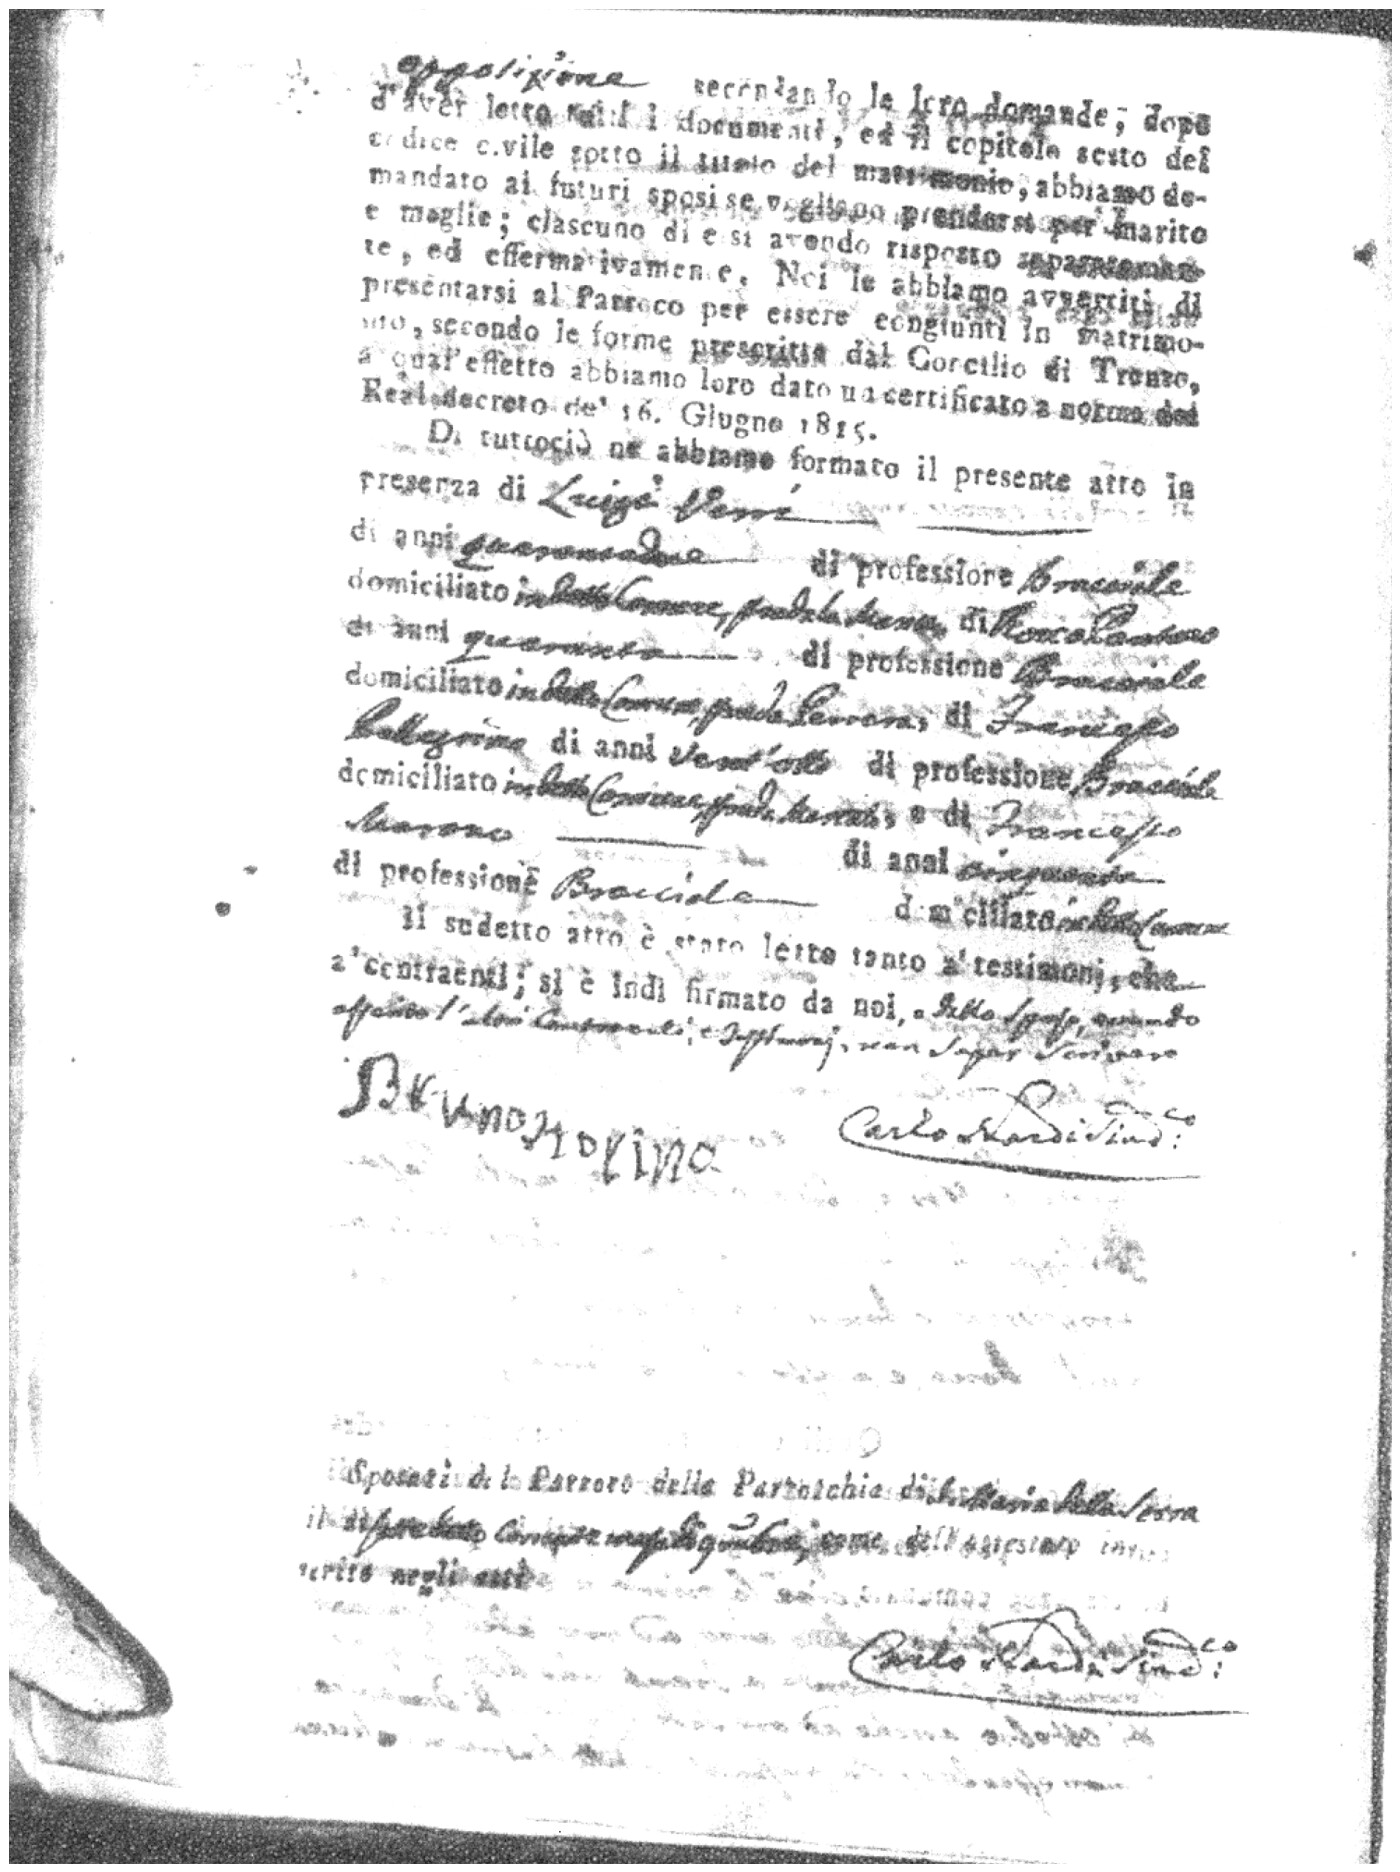 opposizione secondando le loro domande; dopo
d'aver letto tutti i documenti, ed il capitolo sesto del
codice civile sotto il titolo del matrimonio, abbiamo do-
mandato ai futuri sposi se vogliono prendersi per marito
e moglie; ciascuno di essi avendo risposto separatamen-
te, ed affermativamente. Noi le abbiamo avvertiti di
presentarsi al Parroco per essere congiunti in matrimo-
nio, secondo le forme prescritte dal Concilio di Trento,
a qual'effetto abbiamo loro dato un certificato a norma del
Real decreto de' 16. Giugno 1815.
Di tuttociò ne abbiamo formato il presente atto in
presenza di Luigi
di anni quarantadue di professione Bracciale
domiciliato in detto Comune, di Rocco
di anni quaranta di professione Bracciale
domiciliato in detto Comune, strada di Francesco
Pellegrino di anni vent'otto di professione Bracciale
domiciliato in detto Comune, strada e di Francesco
Marano di anni cinquanta
di professione Bracciale domiciliato in detto Comune
Il sudetto atto è stato letto tanto a' testimonj, che
a' contraenti; si è indi firmato da noi, e dallo Sposo, avendo
asserito l'altri Contraenti, e Testimonj, non saper scrivere
Bruno
Carlo Nardi Sind.co
Sposati dal Parroco della Parrocchia di S. Maria della Serra
il come dall'attestato inse-
rito negli atti
Carlo Nardi Sind.co